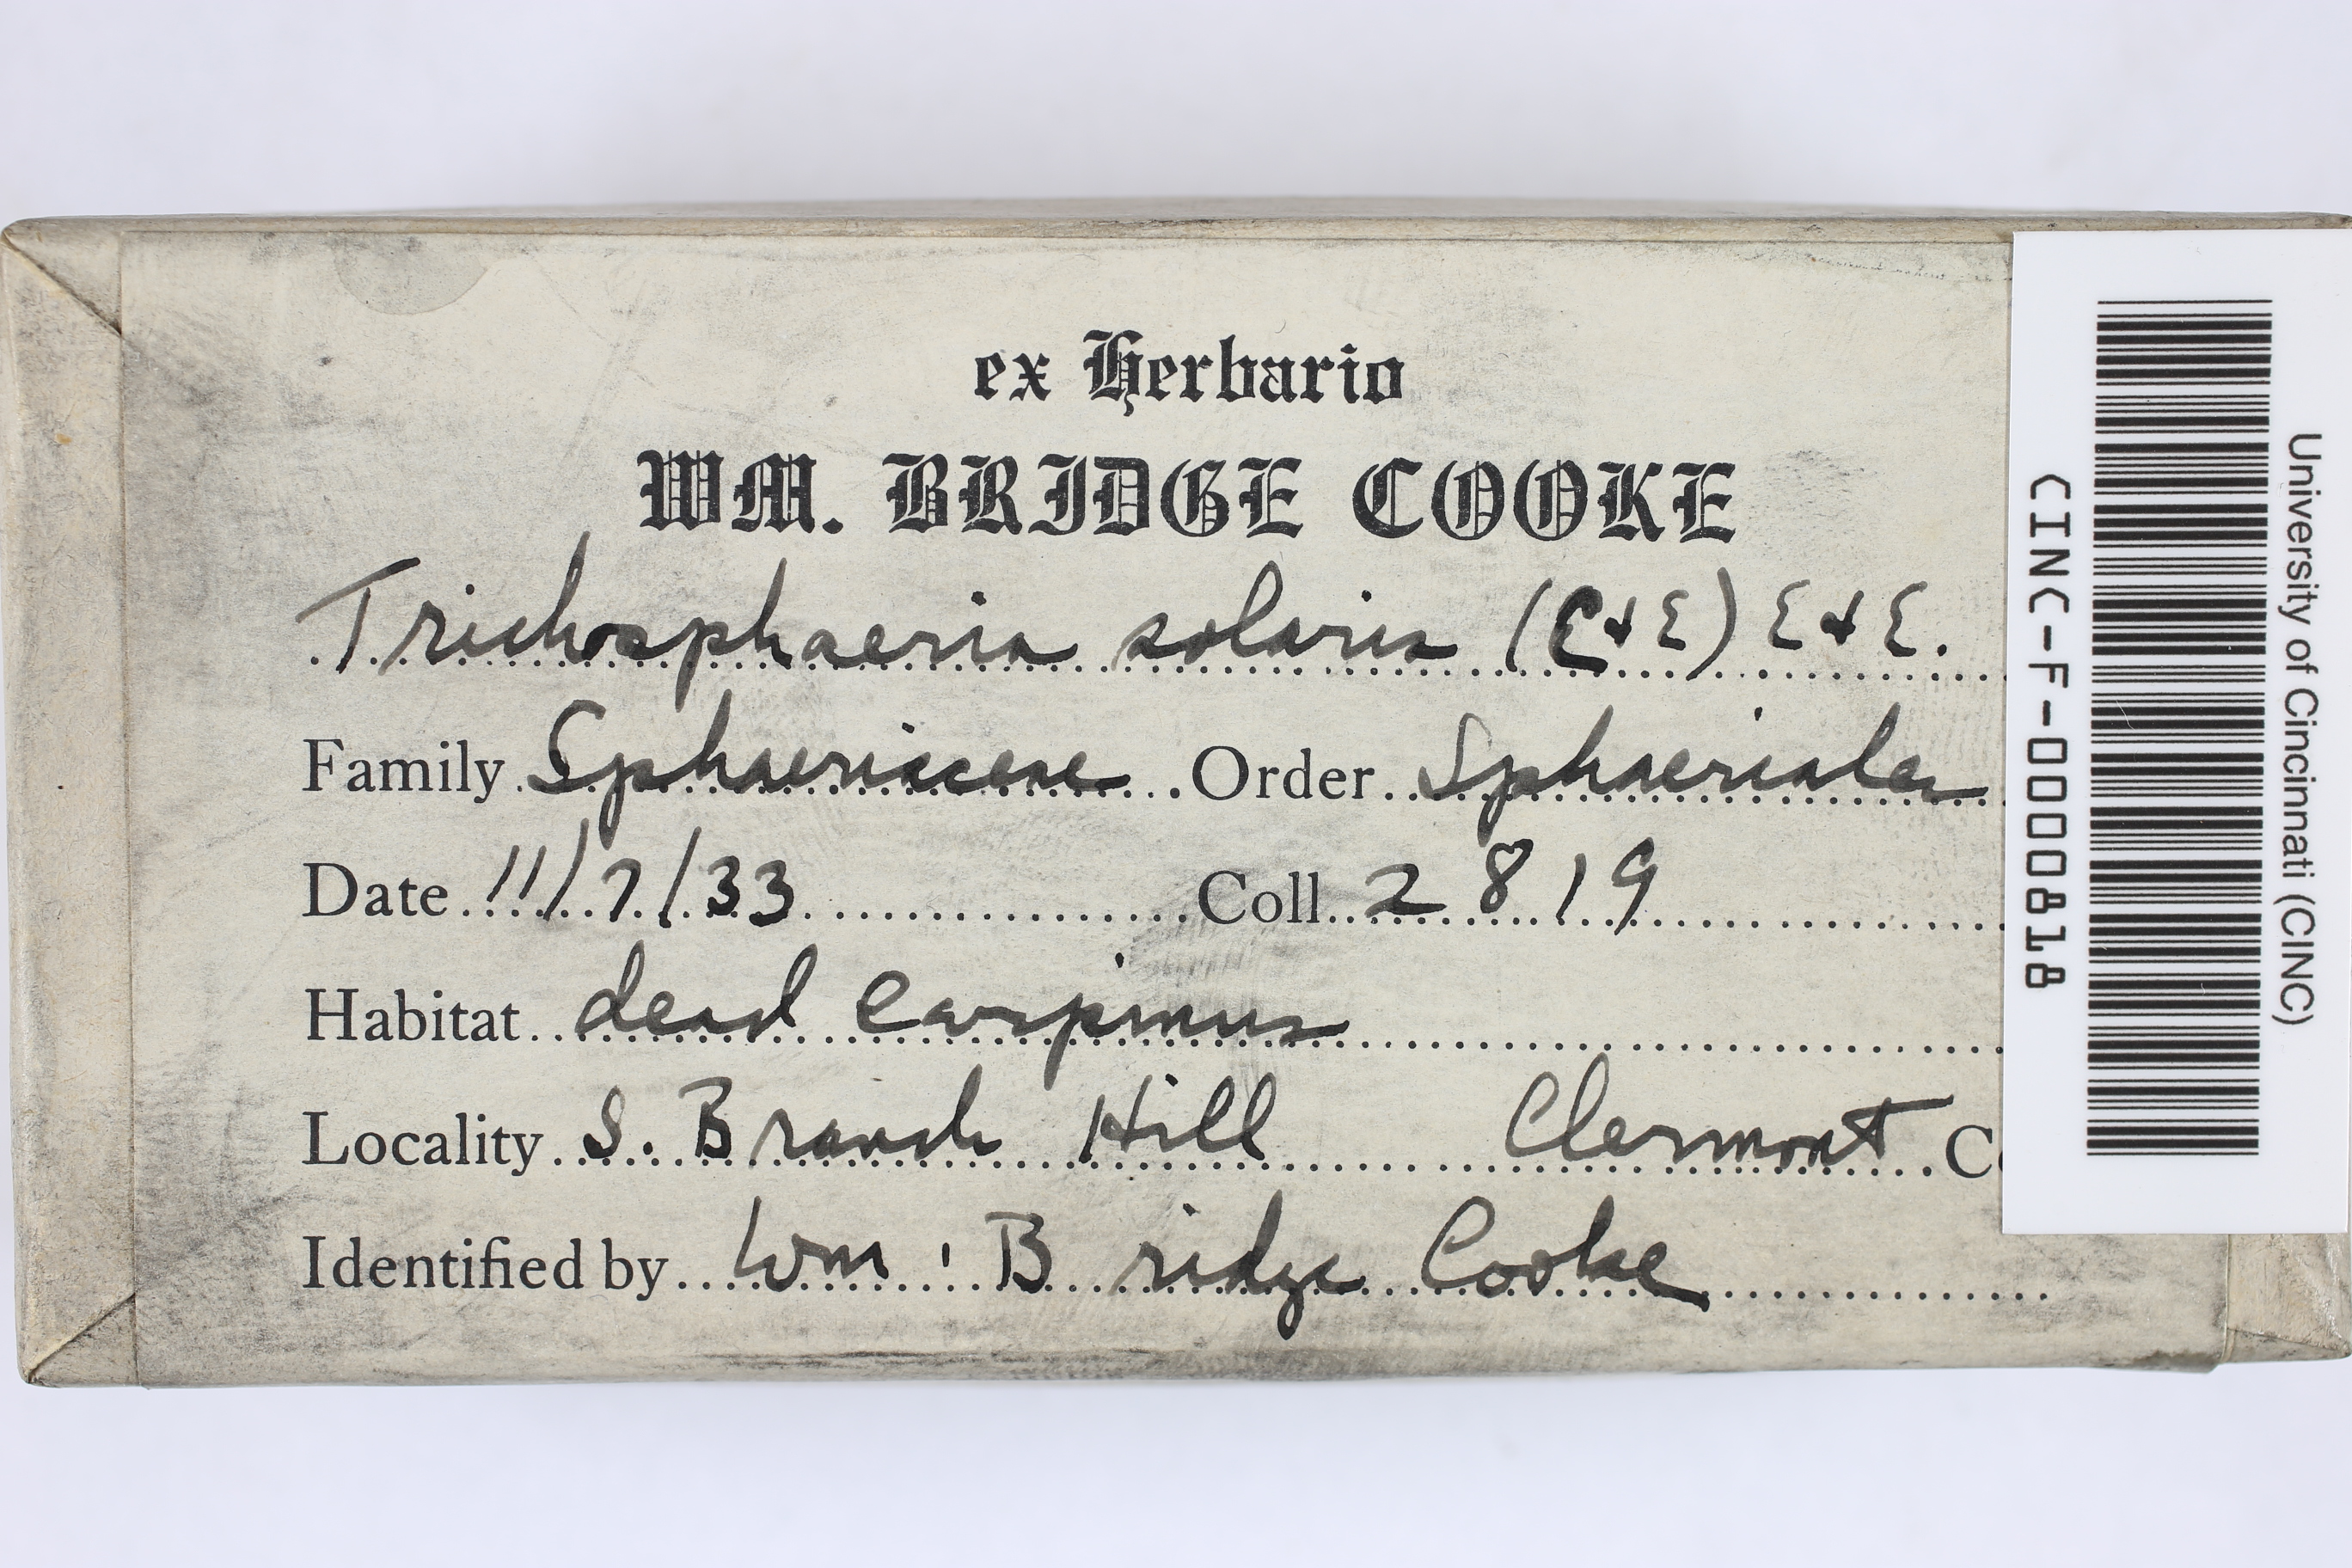 ex Herbario
WM. BRIDGE COOKE
Trichosphaeria solaris (C & E) E & E.
Family Sphaeriaceae Order Sphaeriales
Date 11/7/33 Coll. 2819
Habitat dead Carpinus
Locality S. Branch Hill Clermont C
Identified by Wm. Bridge Cooke
CINC-F-0000818
University of Cincinnati (CINC)